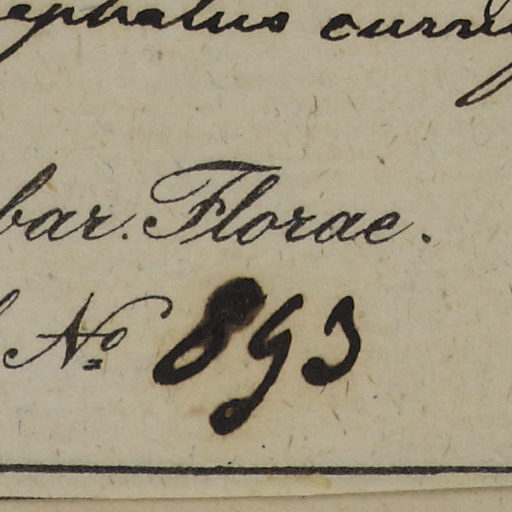 ephalus curr
bar. Florae.
No 893